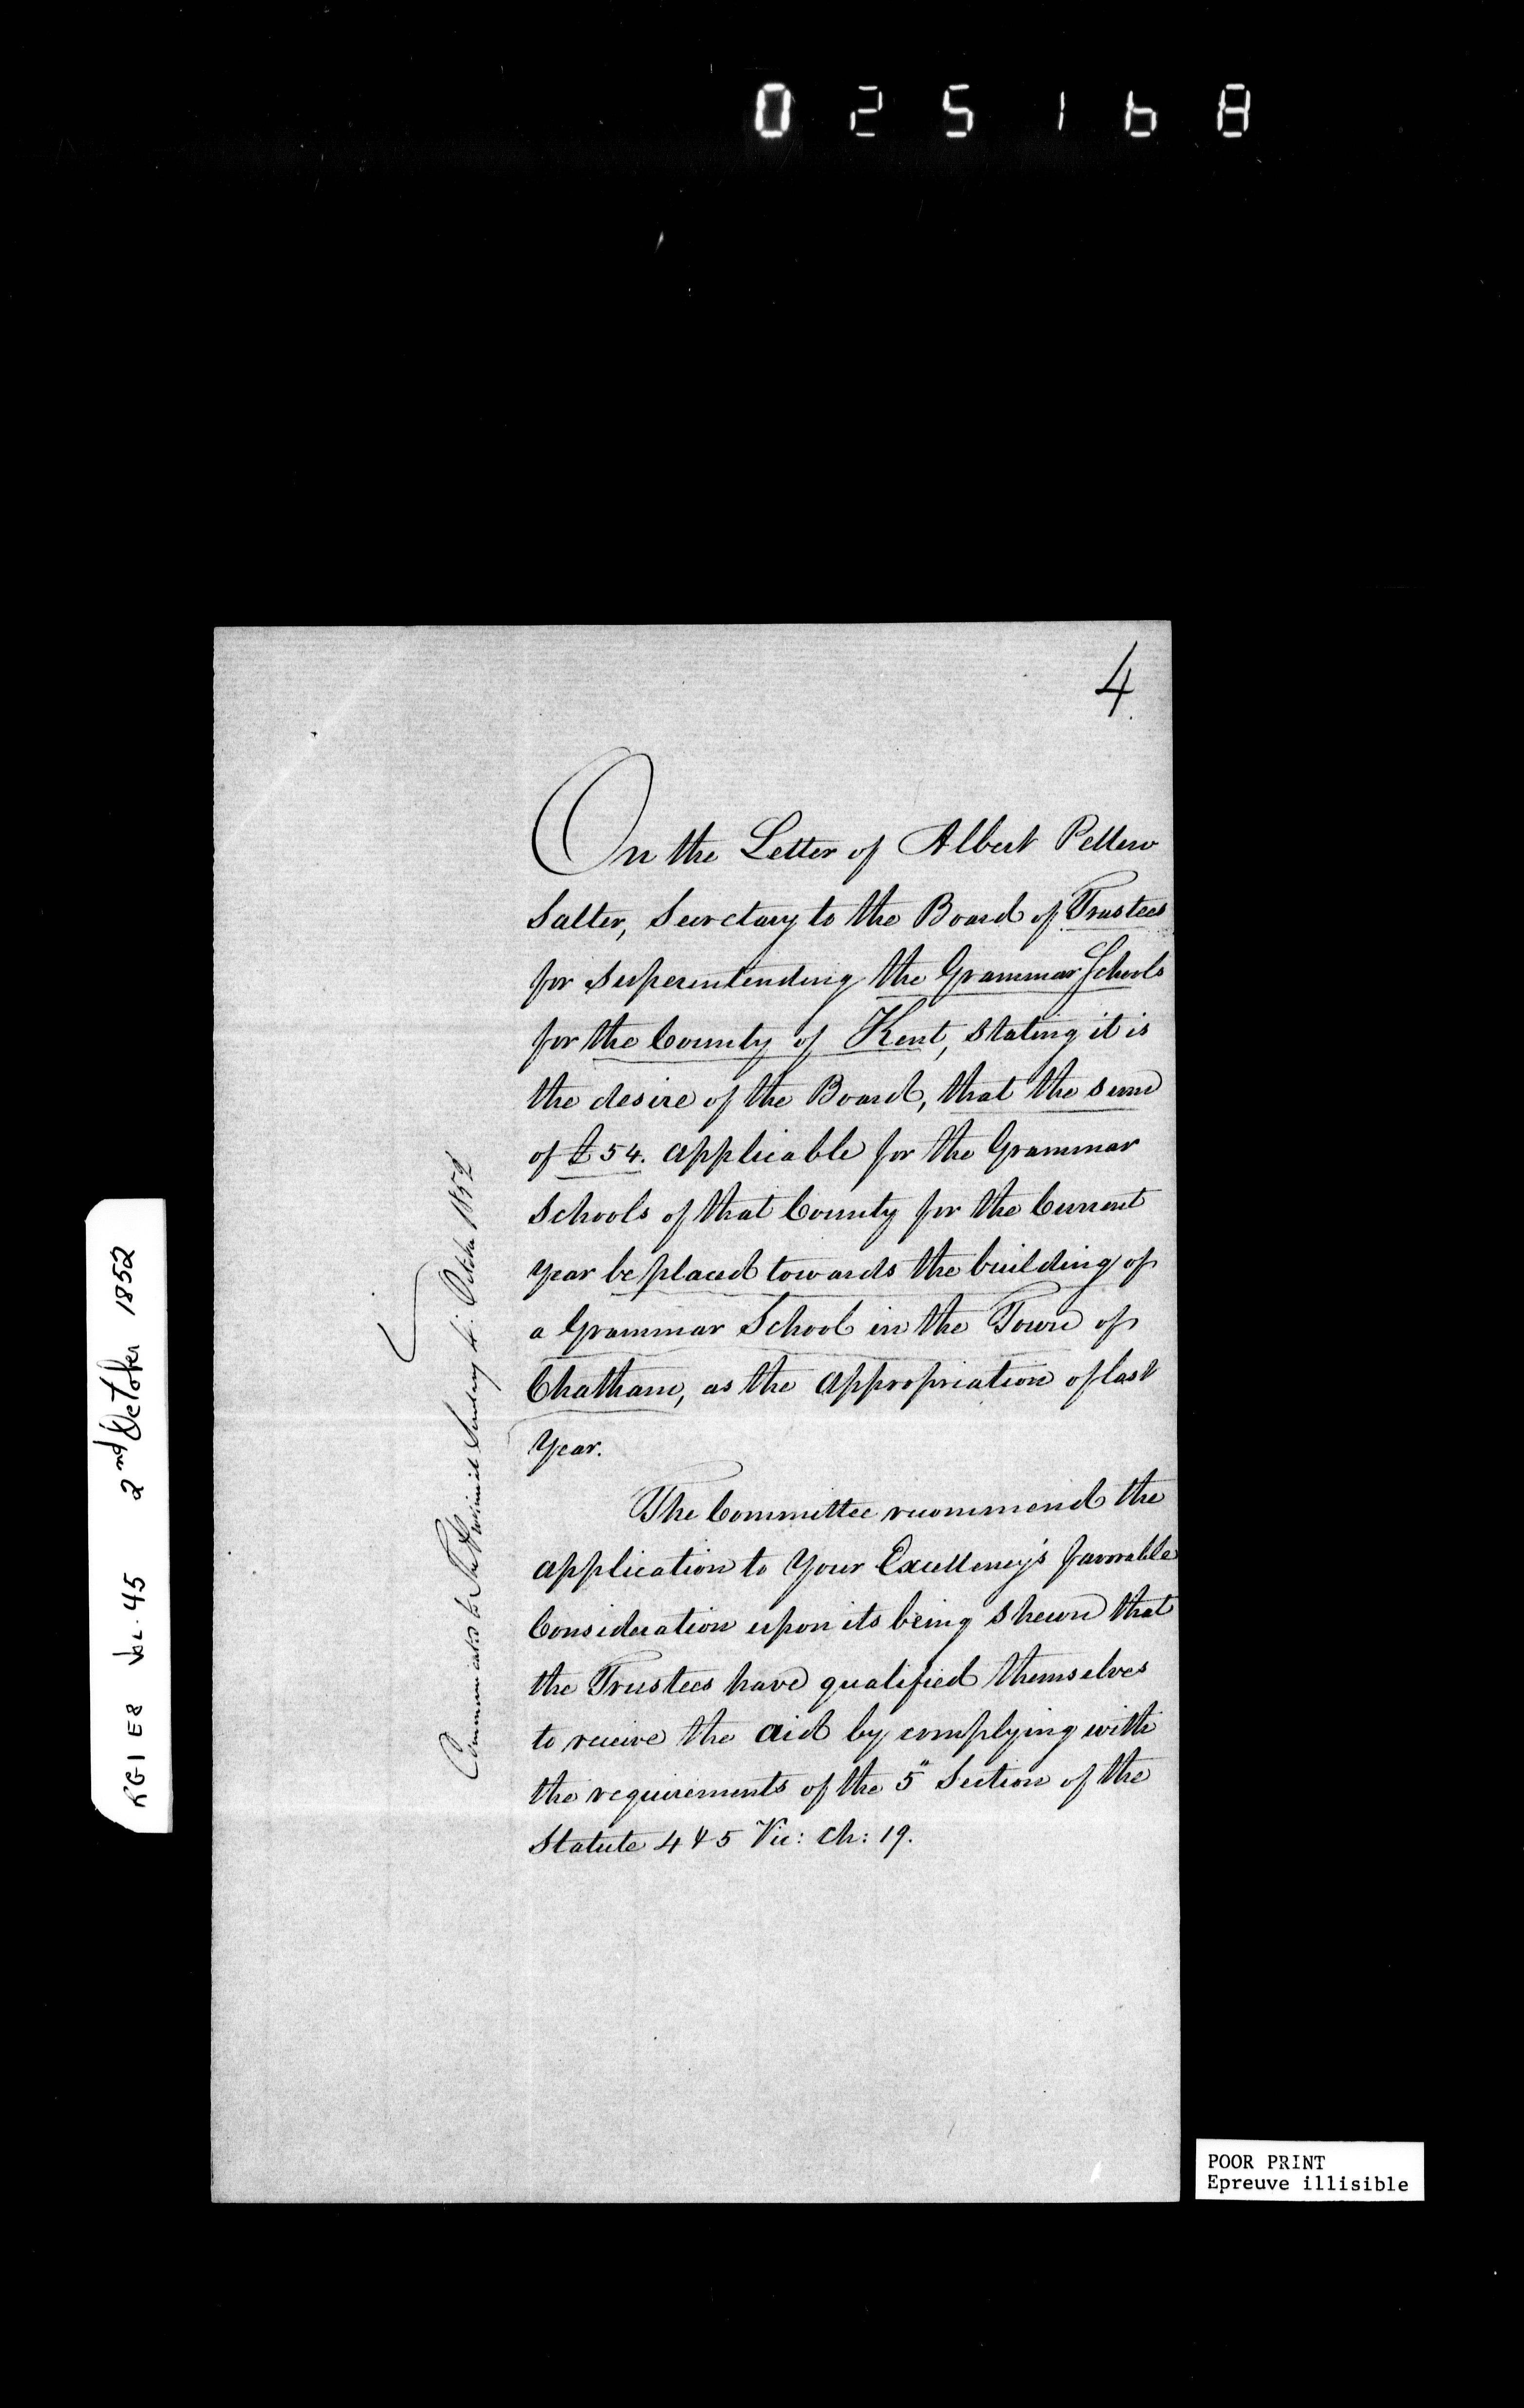 025168
4
On the Letter of Albert Pellew
Salter, Secretary to the Board of Trustees
for superintending the Grammar Schools
for the County of Kent, stating it is
the desire of the Board, that the sum
of £54. applicable for the Grammar
Schools of that County for the Current
year be placed towards the building of
a Grammar School in the Town of
Chatham, as the appropriation of last
Year.
The Committee recommend the
application to Your Excellency's favorable
Consideration upon its being shewn that
the Trustees have qualified themselves
to receive the aid by complying with
the requirements of the 5" Section of the
Statute 4 & 5 Vic: Ch: 19.
Communicated to The Provincial Secretary 4: October 1852
RG1 E8 Vol. 45 2nd October 1852
POOR PRINT
Epreuve illisible